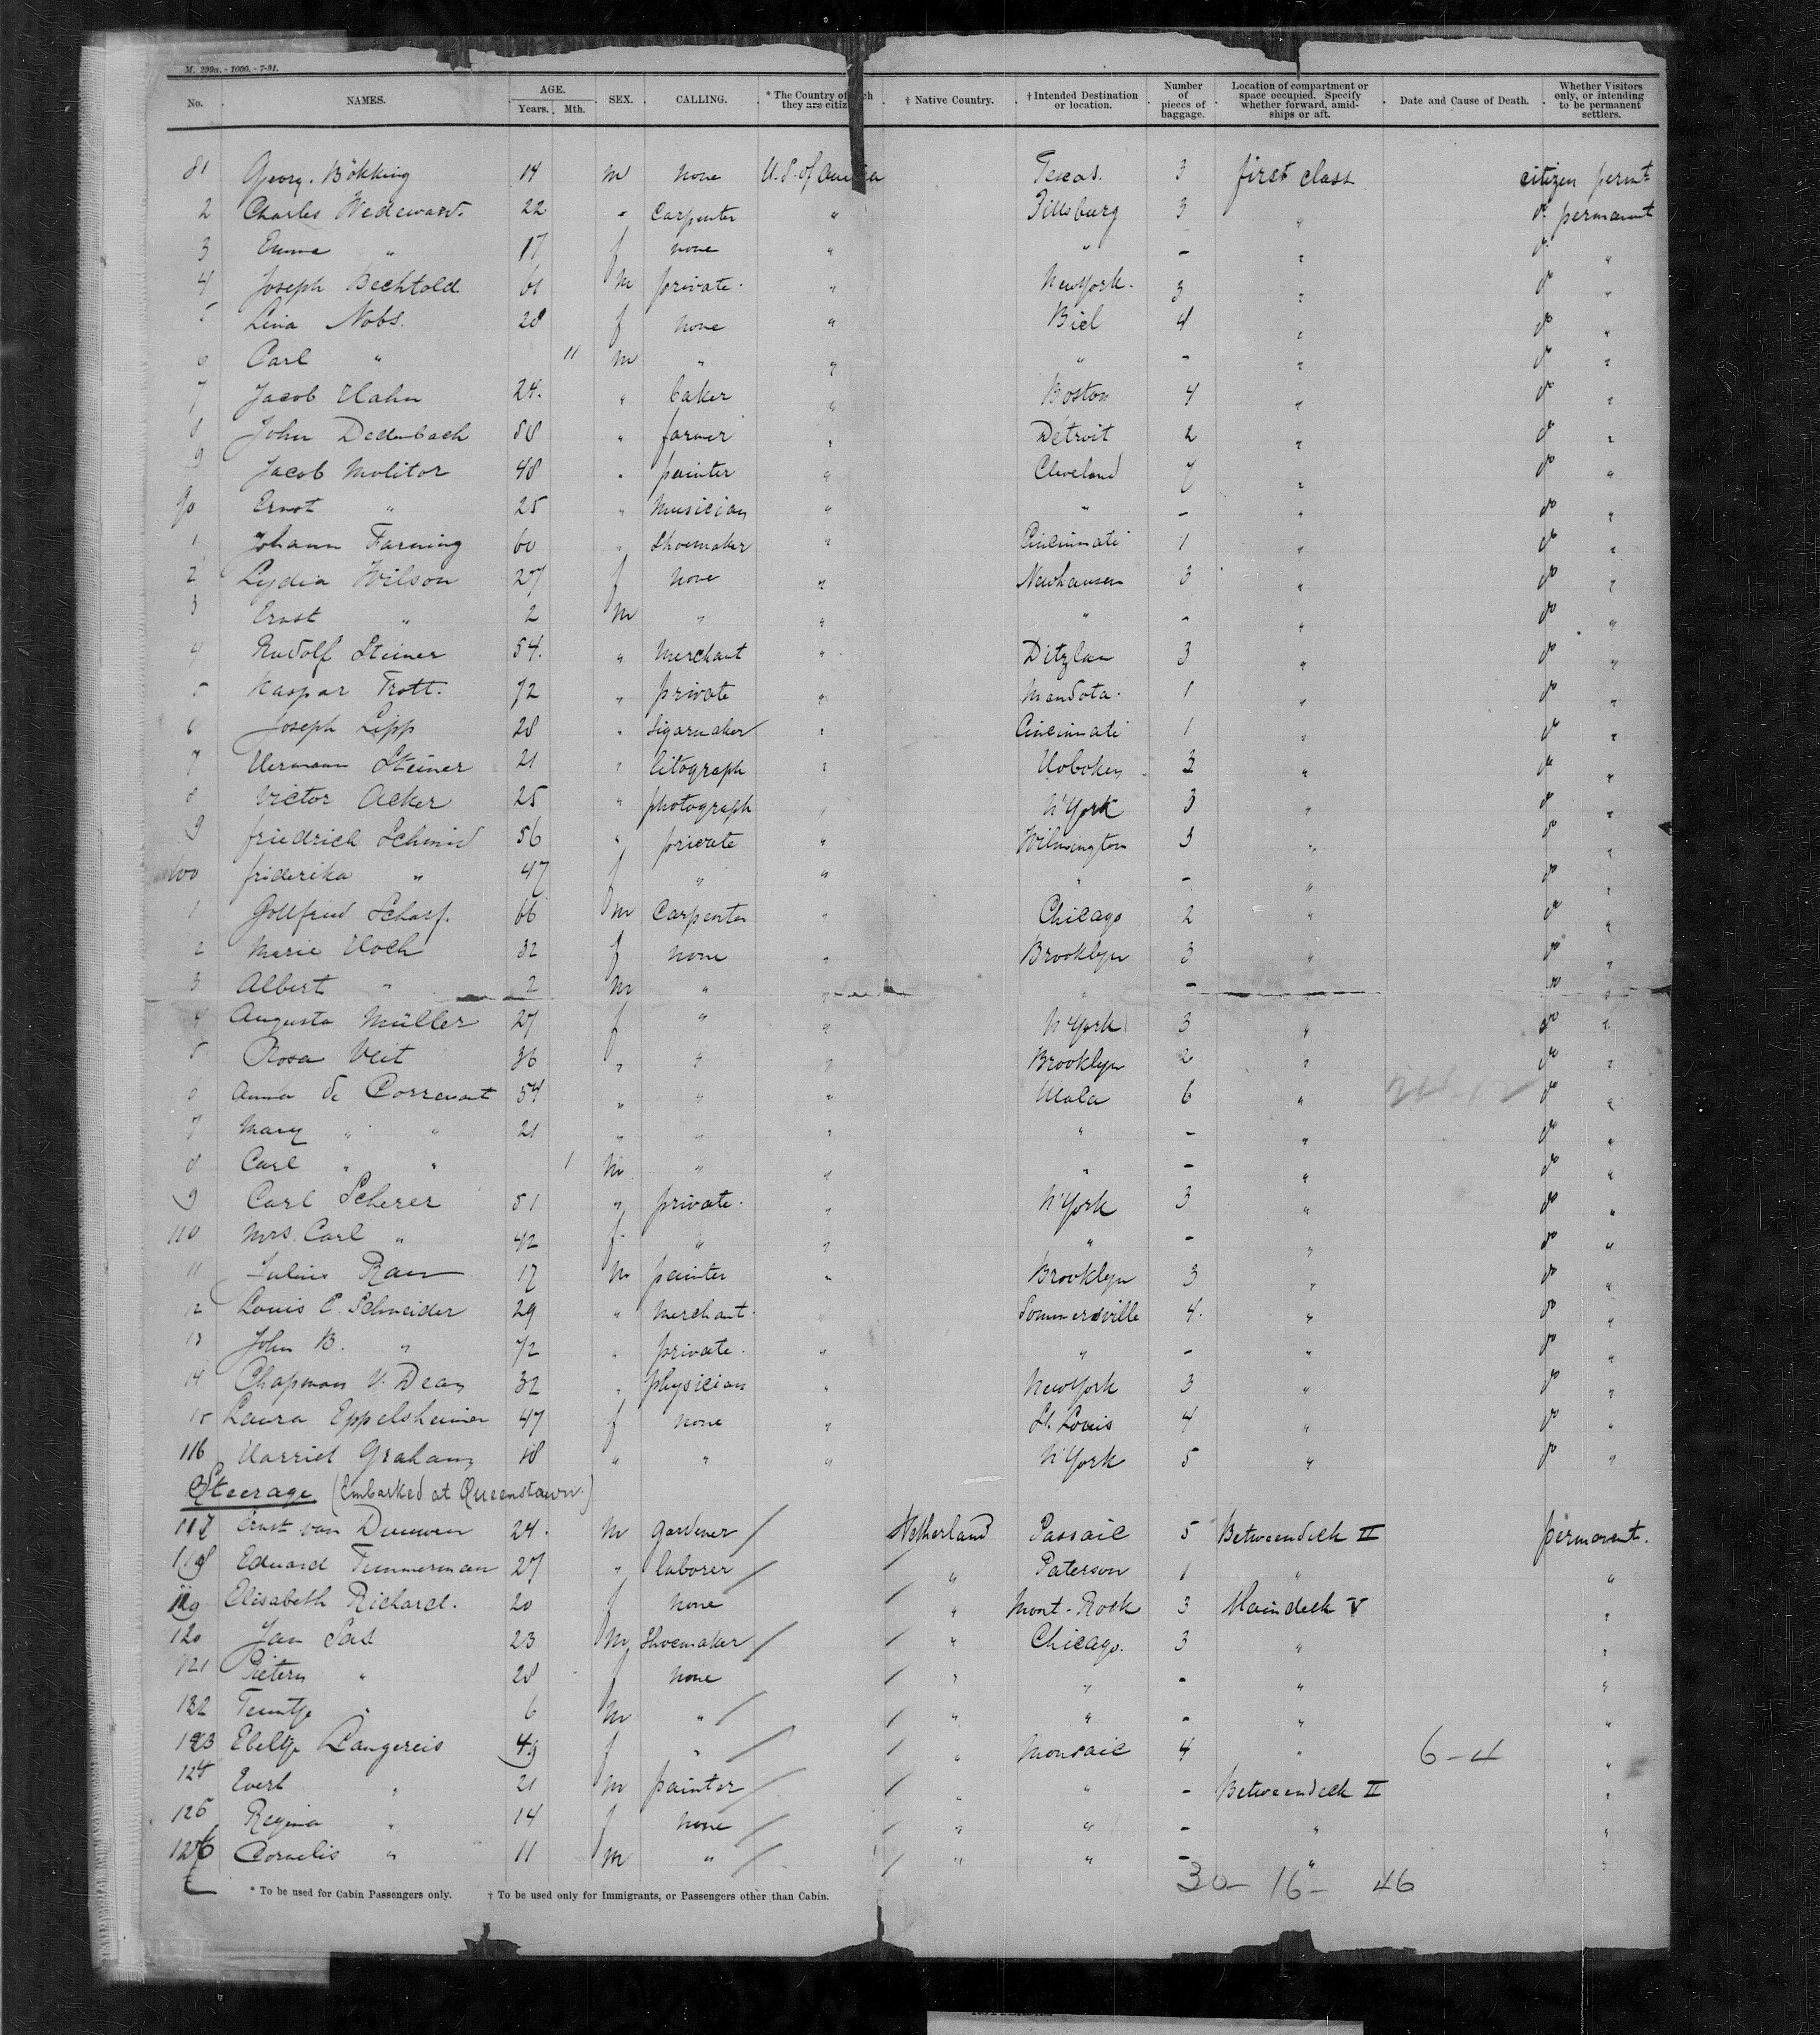 M. 299a. - 1000. - 7-91.
No. NAMES. AGE. Years. Mth. SEX. CALLING. * The Country of which they are citiz † Native Country. † Intended Destination or location. Number of pieces of baggage. Location of compartment or space occupied. Specify whether forward, amidships or aft. Date and Cause of Death. Whether Visitors only, or intending to be permanent settlers.
81 Georg. Bökking 14 m none U.S. of America Texas. 3 first class citizen permt
2 Charles Wedeward. 22 " carpenter " Pittsburg 3 " do permanent
3 Emma " 17 f none " " - " do "
4 Joseph Bechtold 61 m private. " New York. 3 " do "
5 Lina Nobs. 28 f none " Biel 4 " do "
6 Carl " 11 m " " " - " do "
7 Jacob Hahn 24. " baker " Boston 4 " do "
8 John Dedenbach 58 " farmer " Detroit 2 " do "
9 Jacob Molitor 48 " painter " Cleveland 7 " do "
90 Ernst " 25 " musician " " - " do "
1 Johann Farning 60 " shoemaker " Cincinnati 1 " do "
2 Lydia Wilson 27 f none " Newhausen 3 " do "
3 Ernst " 2 m " " " - " do "
4 Rudolf Steiner 54. " merchant " Ditzlau 3 " do "
5 Kaspar Trott. 72 " private " Mendota. 1 " do "
6 Joseph Lipp 28 " sigarmaker " Cincinnati 1 " do "
7 Hermann Steiner 21 " litograph " Hoboken 3 " do "
8 Victor Acker 25 " photograph " N'York 3 " do "
9 friedrich Schmid 56 " private " Wilmington 3 " do "
100 friderika " 47 f " " " - " do "
1 Gottfried Scharf. 66 m carpenter " Chicago 2 " do "
2 Marie Hoch 32 f none " Brooklyn 3 " do "
3 Albert " 2 m " " " - " do "
4 Augusta Müller 27 f " " N'York 3 " do "
5 Rosa Veit 36 " " " Brooklyn 2 " do "
6 Anna de Correvont 54 " " " Hala 6 " do "
7 Mary " " 21 " " " " - " do "
8 Carl " " 1 m " " " - " do "
9 Carl Scherer 51 " private. " N'York 3 " do "
110 Mrs. Carl " 42 f. " " " - " do "
11 Julius Rau 17 m painter " Brooklyn 3 " do "
12 Louis C. Schneider 29 " merchant. " Sommersville 4. " do "
13 John B. " 72 " private. " " - " do "
14 Chapman V. Dean 32 " physician " New York 3 " do "
15 Laura Eppelsheimer 47 f none " St. Louis 4 " do "
116 Harriet Graham 48 " " " N'York 5 " do "
Steerage (Embarked at Queenstown.)
117 Ernst van Duuwen 24. m gardener / Netherland Passaic 5 Betweendeck II permanent.
118 Eduard Timmerman 27 " laborer / " Paterson 1 " "
119 Elisabeth Richard. 20 f none / " Mont-Rock 3 Maindeck V "
120 Jan Sas 23 m shoemaker / / " Chicago. 3 " "
121 Pietern " 28 f none / " " - " "
122 Teuntje " 6 m " / / " " - " "
123 Ebeltje Langereis 49 f " / / " 4 " 6-4 "
124 Evert " 21 m painter / / " " - Betweendeck II "
125 Regina " 14 f none / / " " - " "
126 Cornelis " 11 m " / / " " - " "
30- 16- 46
* To be used for Cabin Passengers only. † To be used only for Immigrants, or Passengers other than Cabin.